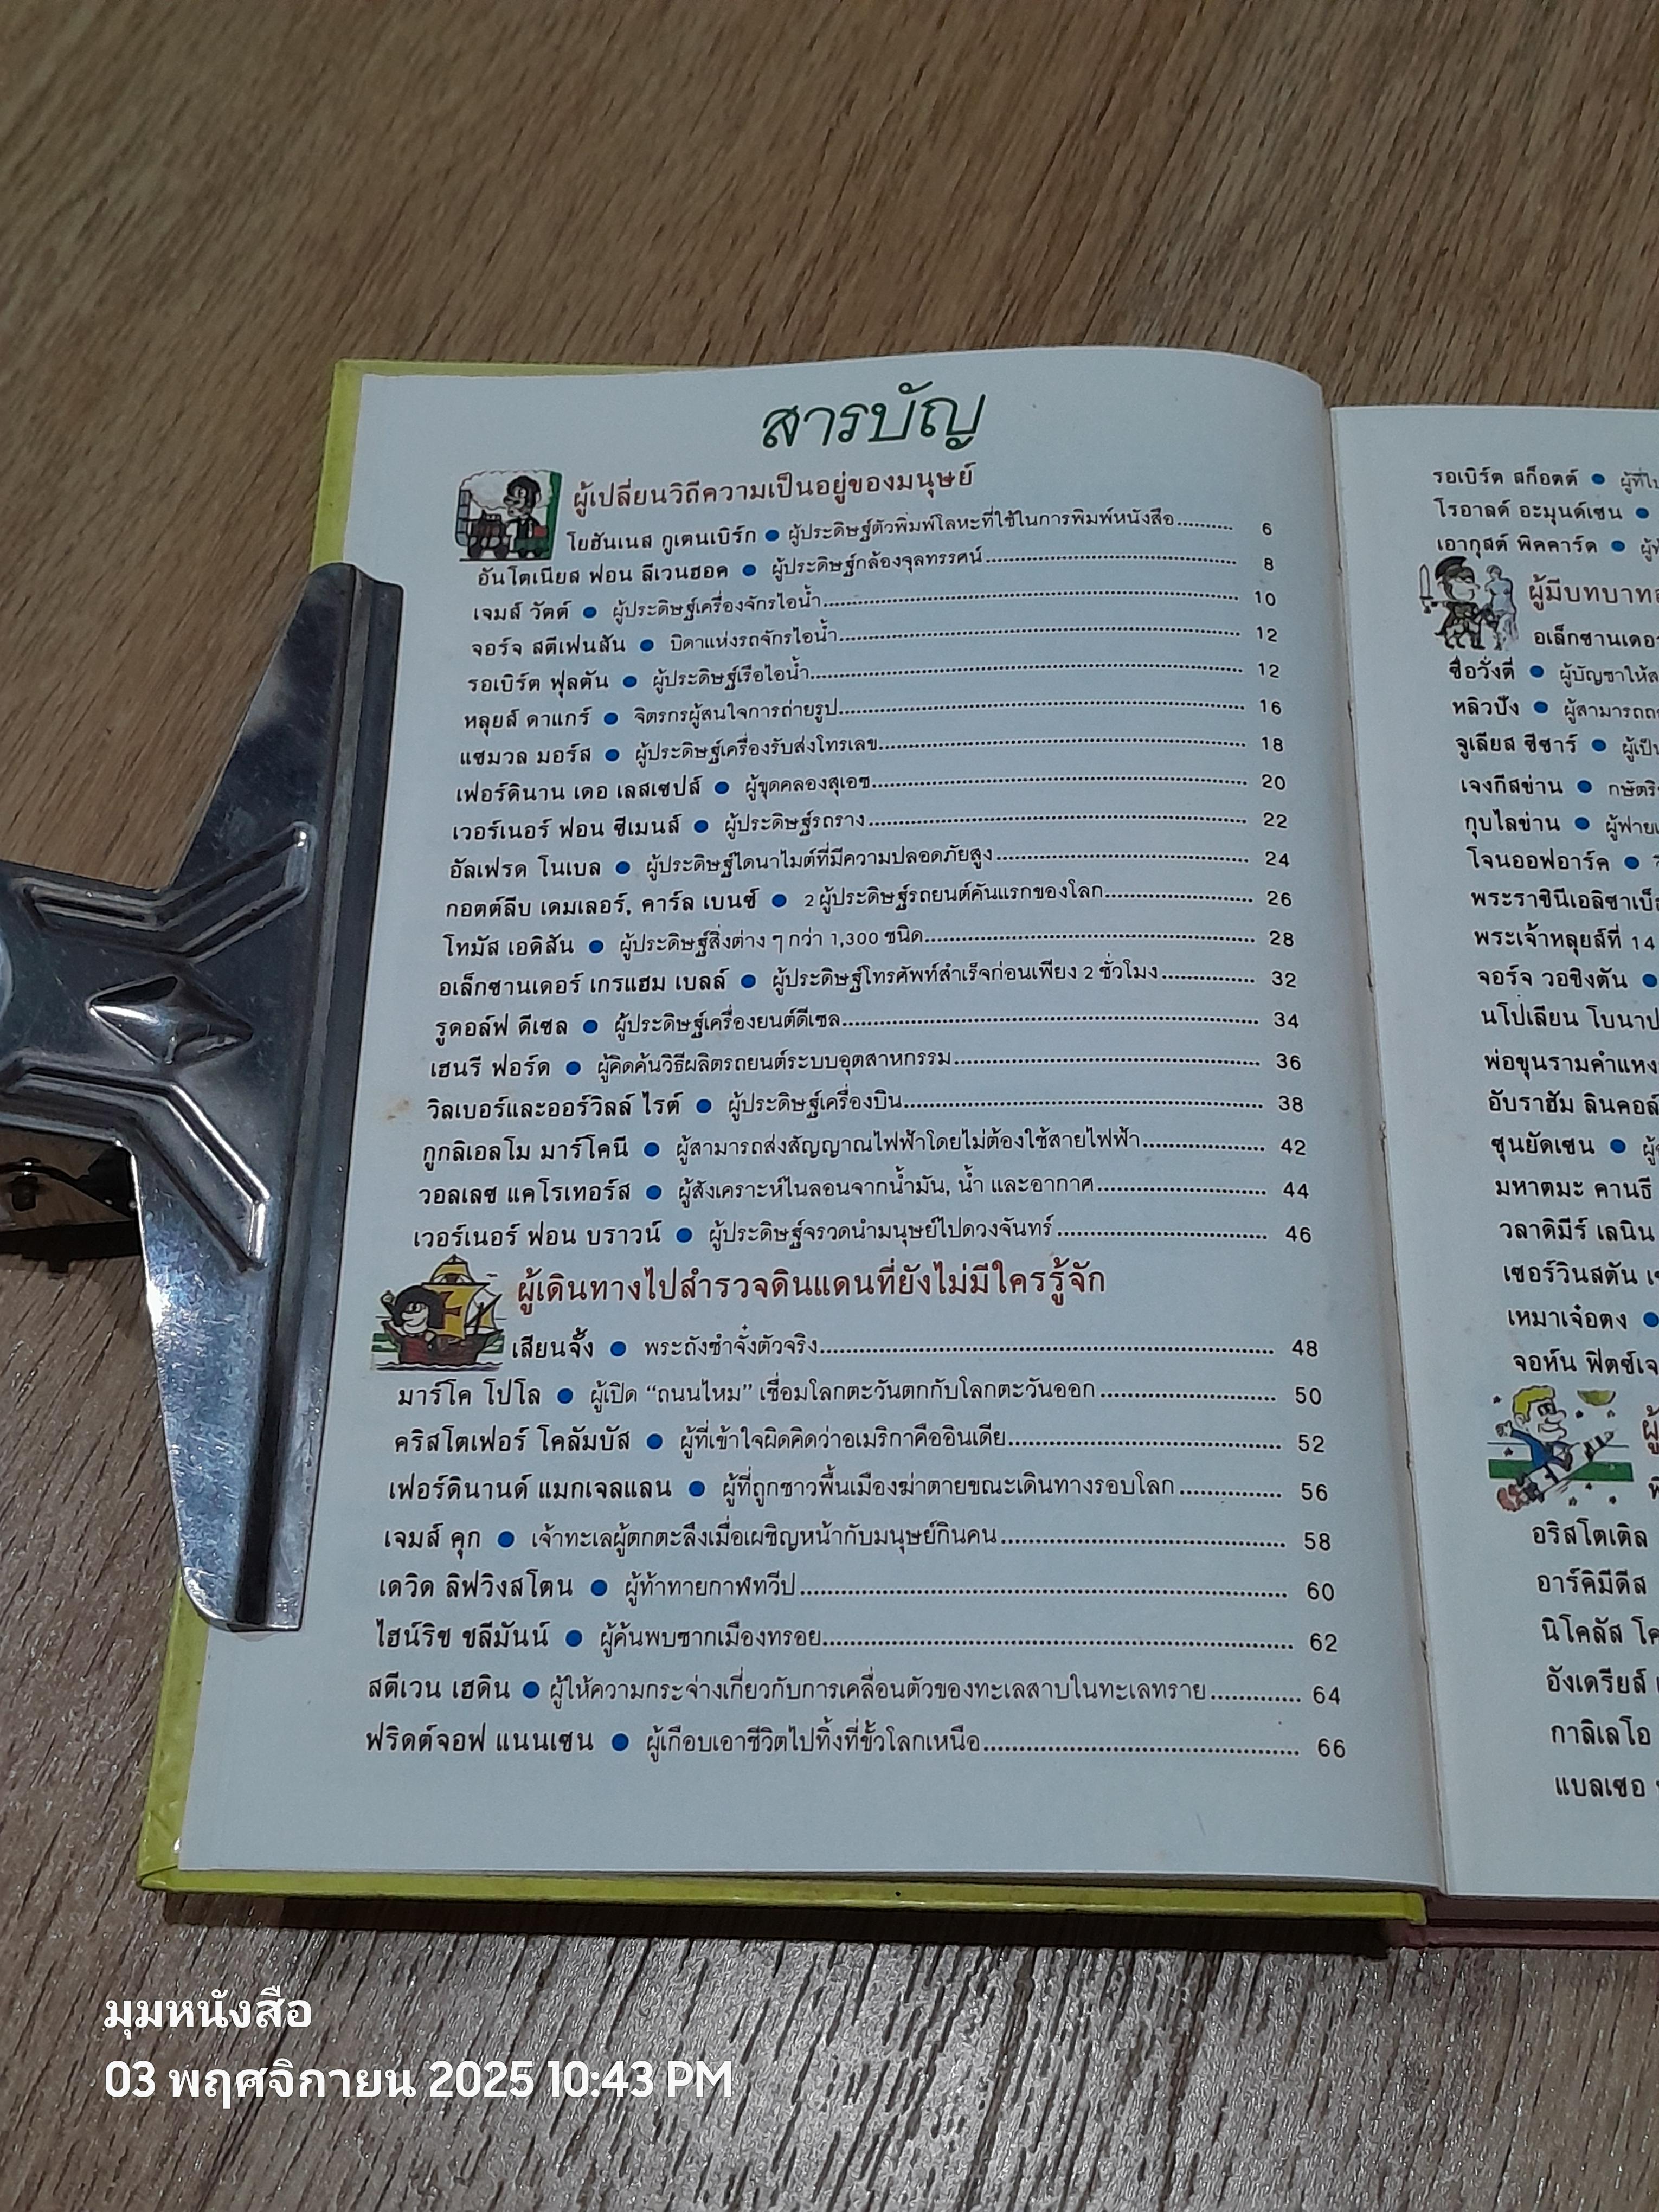 สารบัญ
ผู้เปลี่ยนวิถีความเป็นอยู่ของมนุษย์
โยฮันเนส กูเตนเบิร์ก ● ผู้ประดิษฐ์ตัวพิมพ์โลหะที่ใช้ในการพิมพ์หนังสือ.......... 6
อันโตเนียส ฟอน ลีเวนฮอค ● ผู้ประดิษฐ์กล้องจุลทรรศน์.......... 8
เจมส์ วัตต์ ● ผู้ประดิษฐ์เครื่องจักรไอน้ำ.......... 10
จอร์จ สตีเฟนสัน ● บิดาแห่งรถจักรไอน้ำ.......... 12
รอเบิร์ต ฟุลตัน ● ผู้ประดิษฐ์เรือไอน้ำ.......... 12
หลุยส์ ดาแกร์ ● จิตรกรผู้สนใจการถ่ายรูป.......... 16
แซมวล มอร์ส ● ผู้ประดิษฐ์เครื่องรับส่งโทรเลข.......... 18
เฟอร์ดินาน เดอ เลสเซปส์ ● ผู้ขุดคลองสุเอซ.......... 20
เวอร์เนอร์ ฟอน ซีเมนส์ ● ผู้ประดิษฐ์รถราง.......... 22
อัลเฟรด โนเบล ● ผู้ประดิษฐ์ไดนาไมต์ที่มีความปลอดภัยสูง.......... 24
กอตต์ลีบ เดมเลอร์, คาร์ล เบนซ์ ● 2 ผู้ประดิษฐ์รถยนต์คันแรกของโลก.......... 26
โทมัส เอดิสัน ● ผู้ประดิษฐ์สิ่งต่าง ๆ กว่า 1,300 ชนิด.......... 28
อเล็กซานเดอร์ เกรแฮม เบลล์ ● ผู้ประดิษฐ์โทรศัพท์สำเร็จก่อนเพียง 2 ชั่วโมง.......... 32
รูดอล์ฟ ดีเซล ● ผู้ประดิษฐ์เครื่องยนต์ดีเซล.......... 34
เฮนรี ฟอร์ด ● ผู้คิดค้นวิธีผลิตรถยนต์ระบบอุตสาหกรรม.......... 36
วิลเบอร์และออร์วิลล์ ไรต์ ● ผู้ประดิษฐ์เครื่องบิน.......... 38
กูกลิเอลโม มาร์โคนี ● ผู้สามารถส่งสัญญาณไฟฟ้าโดยไม่ต้องใช้สายไฟฟ้า.......... 42
วอลเลซ แคโรเทอร์ส ● ผู้สังเคราะห์ไนลอนจากน้ำมัน, น้ำ และอากาศ.......... 44
เวอร์เนอร์ ฟอน บราวน์ ● ผู้ประดิษฐ์จรวดนำมนุษย์ไปดวงจันทร์.......... 46
ผู้เดินทางไปสำรวจดินแดนที่ยังไม่มีใครรู้จัก
เสียนจั้ง ● พระถังซำจั๋งตัวจริง.......... 48
มาร์โค โปโล ● ผู้เปิด “ถนนไหม” เชื่อมโลกตะวันตกกับโลกตะวันออก.......... 50
คริสโตเฟอร์ โคลัมบัส ● ผู้ที่เข้าใจผิดคิดว่าอเมริกาคืออินเดีย.......... 52
เฟอร์ดินานด์ แมกเจลแลน ● ผู้ที่ถูกชาวพื้นเมืองฆ่าตายขณะเดินทางรอบโลก.......... 56
เจมส์ คุก ● เจ้าทะเลผู้ตกตะลึงเมื่อเผชิญหน้ากับมนุษย์กินคน.......... 58
เดวิด ลิฟวิงสโตน ● ผู้ท้าทายกาฬทวีป.......... 60
ไฮน์ริช ชลีมันน์ ● ผู้ค้นพบซากเมืองทรอย.......... 62
สตีเวน เฮดิน ● ผู้ให้ความกระจ่างเกี่ยวกับการเคลื่อนตัวของทะเลสาบในทะเลทราย.......... 64
ฟริดต์จอฟ แนนเซน ● ผู้เกือบเอาชีวิตไปทิ้งที่ขั้วโลกเหนือ.......... 66
รอเบิร์ต สก็อตต์ ● ผู้ที่ไป
โรอาลด์ อะมุนด์เซน ●
เอากุสต์ พิคคาร์ด ●
ผู้มีบทบาท
อเล็กซานเดอร์
ซื่อวั่งตี่ ● ผู้บัญชาให้
หลิวปัง ● ผู้สามารถ
จูเลียส ซีซาร์ ● ผู้เป็น
เจงกีสข่าน ● กษัตริ
กุบไลข่าน ● ผู้พ่าย
โจนออฟอาร์ค ●
พระราชินีเอลิซาเบ็
พระเจ้าหลุยส์ที่ 14
จอร์จ วอชิงตัน ●
นโปเลียน โบนาป
พ่อขุนรามคำแหง
อับราฮัม ลินคอล์
ซุนยัดเซน ●
มหาตมะ คานธี
วลาดิมีร์ เลนิน
เซอร์วินสตัน
เหมาเจ๋อตง ●
จอห์น ฟิตซ์เจ
อริสโตเติล
อาร์คิมีดีส
นิโคลัส โค
อังเดรียส์
กาลิเลโอ
แบลเซอ
มุมหนังสือ
03 พฤศจิกายน 2025 10:43 PM